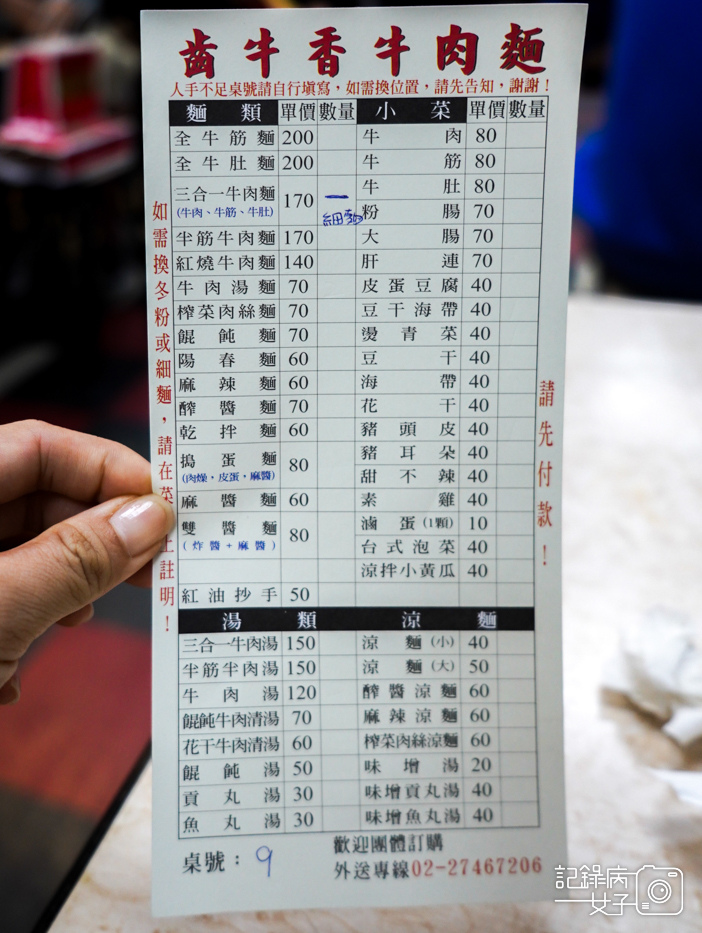 齒牛香牛肉麵
人手不足桌號請自行填寫，如需換位置，請先告知，謝謝！
麵類 單價 數量 小菜 單價 數量
全牛筋麵 200 牛肉 80
全牛肚麵 200 牛筋 80
三合一牛肉麵 170 一 牛肚 80
(牛肉、牛筋、牛肚) 細麵 粉腸 70
半筋牛肉麵 170 大腸 70
紅燒牛肉麵 140 肝連 70
牛肉湯麵 70 皮蛋豆腐 40
榨菜肉絲麵 70 豆干海帶 40
餛飩麵 70 燙青菜 40
陽春麵 60 豆干 40
麻辣麵 60 海帶 40
醡醬麵 70 花干 40
乾拌麵 60 豬頭皮 40
搗蛋麵 80 豬耳朵 40
(肉燥，皮蛋，麻醬) 甜不辣 40
麻醬麵 60 素雞 40
雙醬麵 80 滷蛋(1顆) 10
(炸醬+麻醬) 台式泡菜 40
涼拌小黃瓜 40
紅油抄手 50
湯類 涼麵
三合一牛肉湯 150 涼麵(小) 40
半筋半肉湯 150 涼麵(大) 50
牛肉湯 120 醡醬涼麵 60
餛飩牛肉清湯 70 麻辣涼麵 60
花干牛肉清湯 60 榨菜肉絲涼麵 60
餛飩湯 50 味增湯 20
貢丸湯 30 味增貢丸湯 40
魚丸湯 30 味增魚丸湯 40
桌號：9
歡迎團體訂購
外送專線02-27467206
如需換冬粉或細麵，請在菜上註明！
請先付款！
記錄病
女子